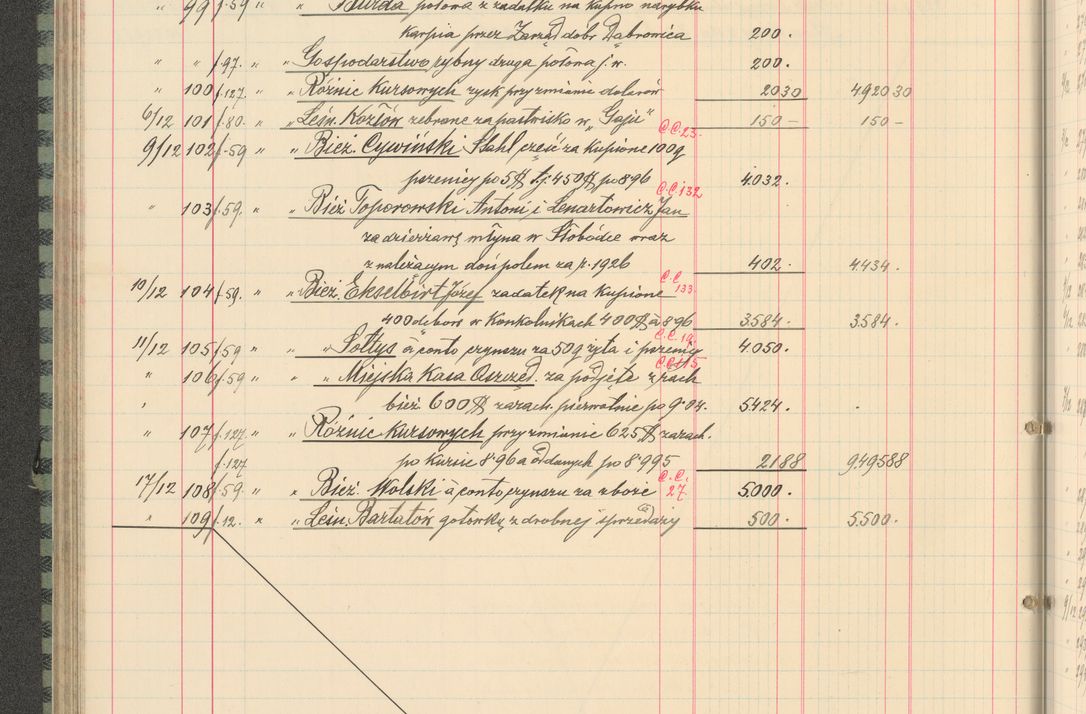 " 99 f.59 " " Burda połowa z zadatku na kupno narybku
karpia przez Zarząd dobr Dąbrowica 200.
" " f.97. " " Gospodarstwo rybny druga połowa j.w. 200.
" 100 f.127. " Różnic Kursowych zysk przy zmianie dolarów 2030 492030
6/12 101 f.80. " " Leśn. Kozłów zebrane za pastwisko w "Gaju" 150 — 150 —
C.C.23.
9/12 102 f.59 " " Bież. Cywiński Stahl część za kupione 100 q
pszenicy po 5 $ t.j. 450 $ po 8.96 4.032.
C.C.132
" 103 f.59. " " Bież Toporowski Antoni i Lenartowicz Jan
za dzierżawę młyna w Słobódce wraz
z należącym doń polem za r. 1926 402. 4.434.
C.C. 133.
10/12 104 f.59. " " Bież. Ekselbirt Józef zadatek na kupione
400 w Konkolnikach 400 $ à 8.96 3.584. 3.584.
C.C.19.
11/12 105 f.59 " " Sołtys à conto czynszu za 50 q żyta i pszenicy 4.050.
" 106 f.59 " " Miejska Kasa Oszczęd. za podjęte z rach
bież. 600 $ zarach. pierwotnie po 9.04. 5424. .
" 107 f.127 " " Różnic Kursowych przy zmianie 625 $ zarach.
f.127 po kursie 8.96 a oddanych po 8.995 2188 949588
C.C. 27.
17/12 108 f.59. " " Bież. Wolski à conto czynszu za zboże 5000.
" 109 f.12. " " Leśn. Bartatów gotówkę z drobnej sprzedaży 500. 5.500.